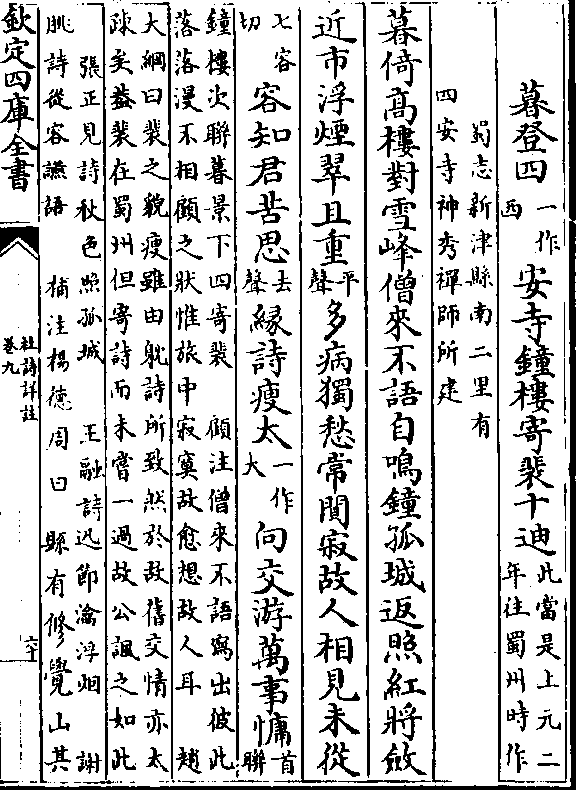 暮登四一作西安寺鐘樓寄裴十迪此當是上元二年往蜀州時作
蜀志新津縣南二里有
四安寺神秀禪師所建
暮倚高樓對雪峰僧來不語自鳴鐘孤城返照紅將斂
近市浮煙翠且重平聲多病獨愁常闃寂故人相見未從
七容切容知君苦思去聲緣詩瘦太一作大向交游萬事慵首聯
鐘樓次聯暮景下四寄裴　顧注僧來不語寫出彼此
落落漫不相顧之狀惟旅中寂寞故愈想故人耳　趙
大綱曰裴之貌瘦雖由躭詩所致然於故舊交情亦太
疎矣葢裴在蜀州但寄詩而未嘗一過故公諷之如此
張正見詩秋色照孤城　王融詩迅節瀹浮烟　謝
朓詩從容讌語　補注楊德周曰縣有修覺山其
欽定四庫全書
杜詩詳註
卷九
六十